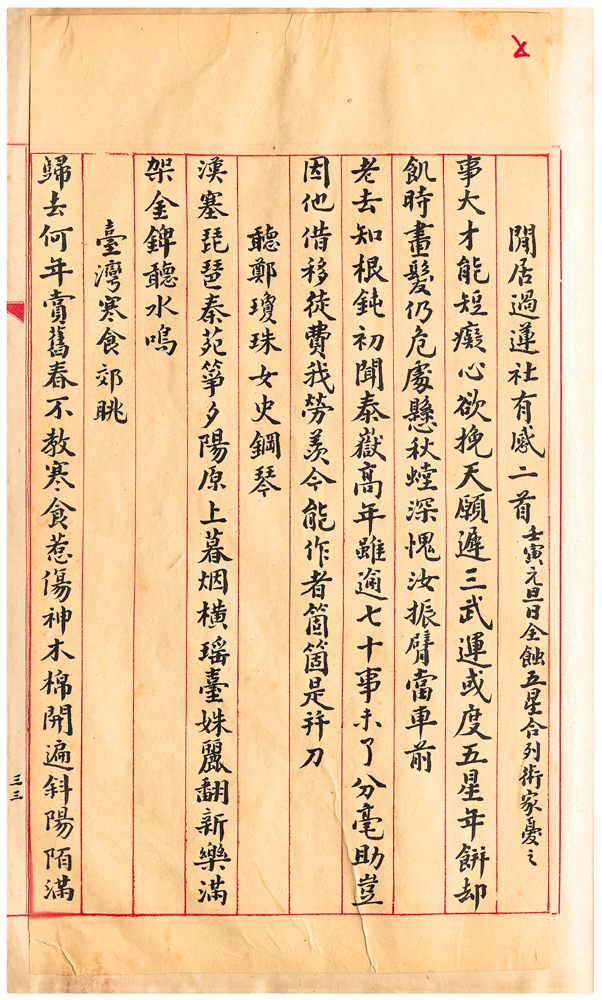 閒居過蓮社有感二首壬寅元旦日全蝕五星合列術家憂之
事大才能短癡心欲挽天願遲三武運或度五星年餅却
飢時畫髮仍危處懸秋螳深愧汝振臂當車前
老去知根鈍初聞泰嶽高年雖逾七十事未了分毫助豈
因他借移徒費我勞羨今能作者箇箇是并刀
聽鄭瓊珠女史鋼琴
漢塞琵琶秦苑箏夕陽原上暮烟橫瑤臺姝麗翻新樂滿
架金錍聽水鳴
臺灣寒食郊眺
歸去何年賞舊春不教寒食惹傷神木棉開遍斜陽陌滿
三三